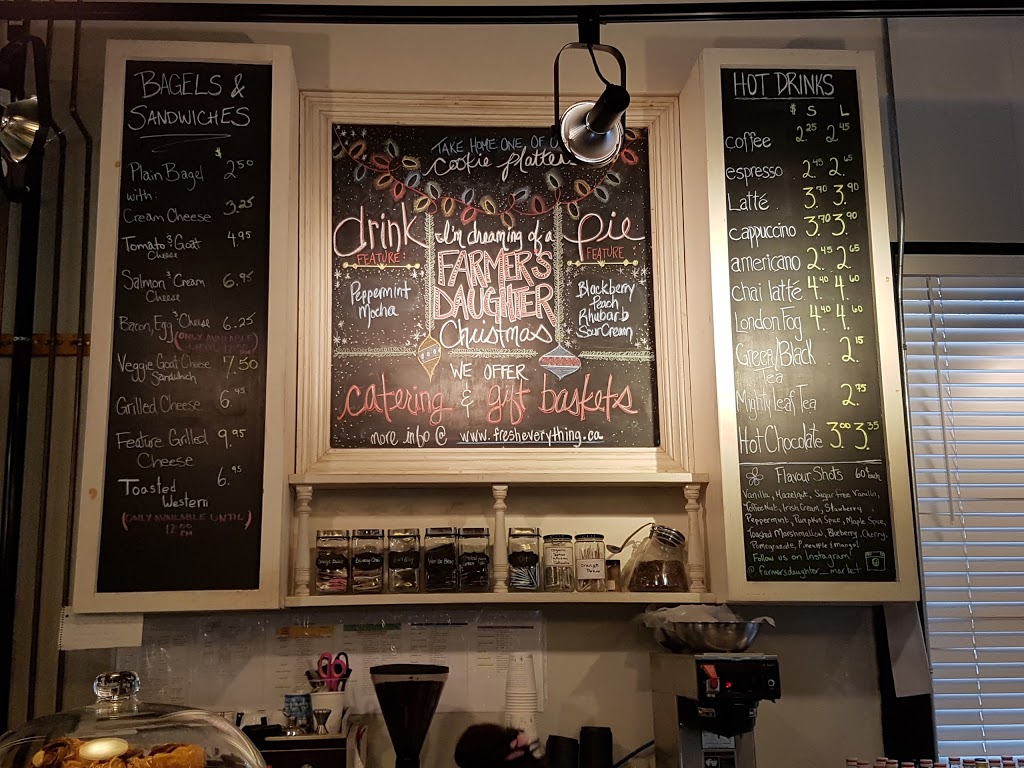 BAGELS &
SANDWICHES
$
Plain Bagel 2.50
with:
Cream Cheese 3.25
Tomato & Goat 4.95
Cheese
Salmon & Cream 6.95
Cheese
Bacon, Egg & Cheese 6.25
(ONLY AVAILABLE
Veggie Goat Cheese 7.50
Sandwich
Grilled Cheese 6.95
Feature Grilled 9.95
Cheese
Toasted 6.95
Western
(ONLY AVAILABLE UNTIL)
12:00
PM
TAKE HOME ONE OF
Cookie Platters
drink
FEATURE
Peppermint
Mocha
I'm dreaming of a
FARMER'S
DAUGHTER
Christmas
pie
FEATURE
Blackberry
Peach
Rhubarb
Sour Cream
WE OFFER
catering & gift baskets
more info @ www.fresheverything.ca
HOT DRINKS
$ S L
coffee 2.25 2.45
espresso 2.45 2.65
Latté 3.70 3.90
cappuccino 3.70 3.90
americano 2.45 2.65
chai latté 4.40 4.60
London Fog 4.40 4.60
Green/Black 2.15
Tea
Mighty Leaf Tea 2.75
Hot Chocolate 3.00 3.35
Flavour Shots 60¢ each
Vanilla, Hazelnut, Sugar free Vanilla,
Toffee Nut, Irish Cream, Strawberry,
Peppermint, Pumpkin Spice, Maple Spice,
Toasted Marshmallow, Blueberry, Cherry,
Pomegranate, Pineapple & mango!
Follow us on Instagram!
@farmersdaughter_market